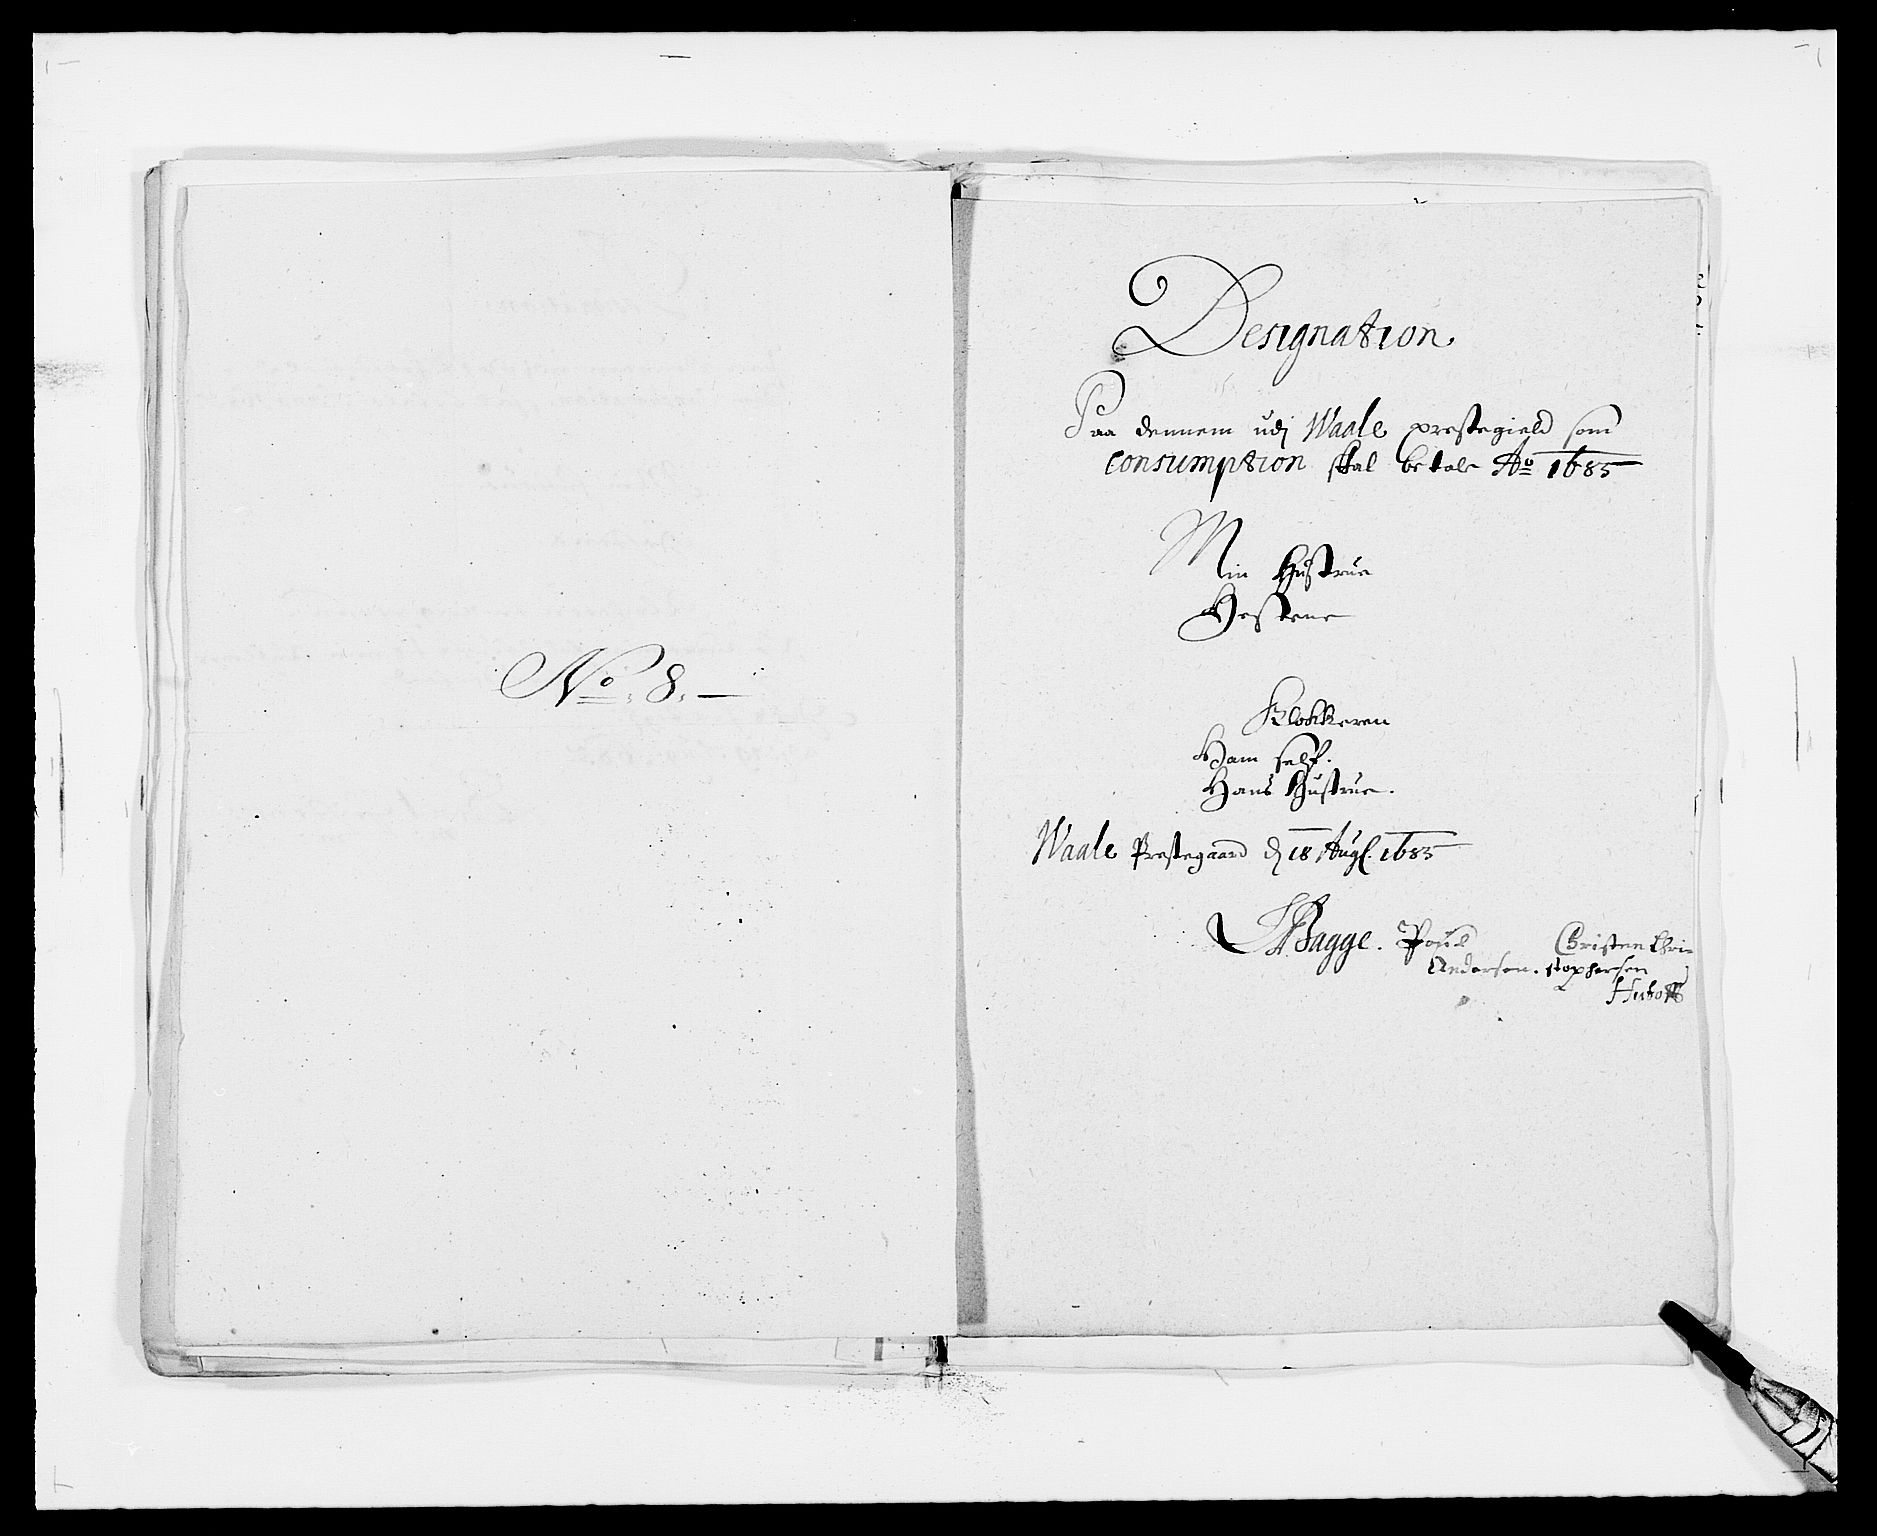 No. 8. —
Designation
Paa dennem udj Waale prestegield som
Consumption skal betale Ao 1685
Min Hustrue
Hestene
Klokkeren
Ham self.
Hans Hustrue.
Waale Prestegaard d 18 Aug. 1685
Bagge. Poul Christen Chri-
Anderson. stophersen